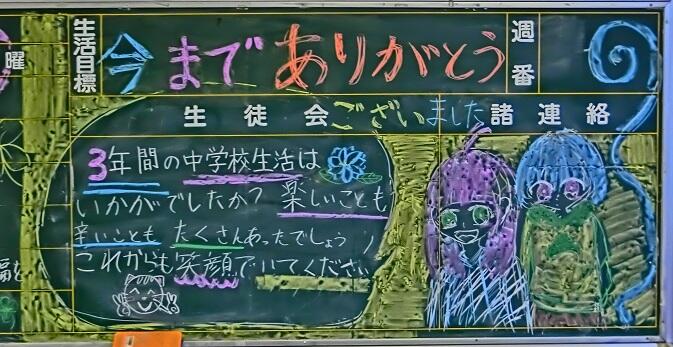 曜
生活目標
今までありがとう
週番
生徒会
ございました
諸連絡
3年間の中学校生活は
いかがでしたか? 楽しいことも
辛いことも たくさんあったでしょう
これからも笑顔でいてください